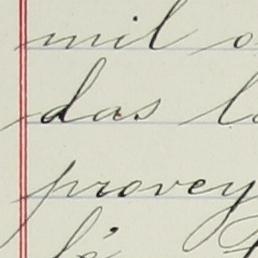 mil o
das l
provey